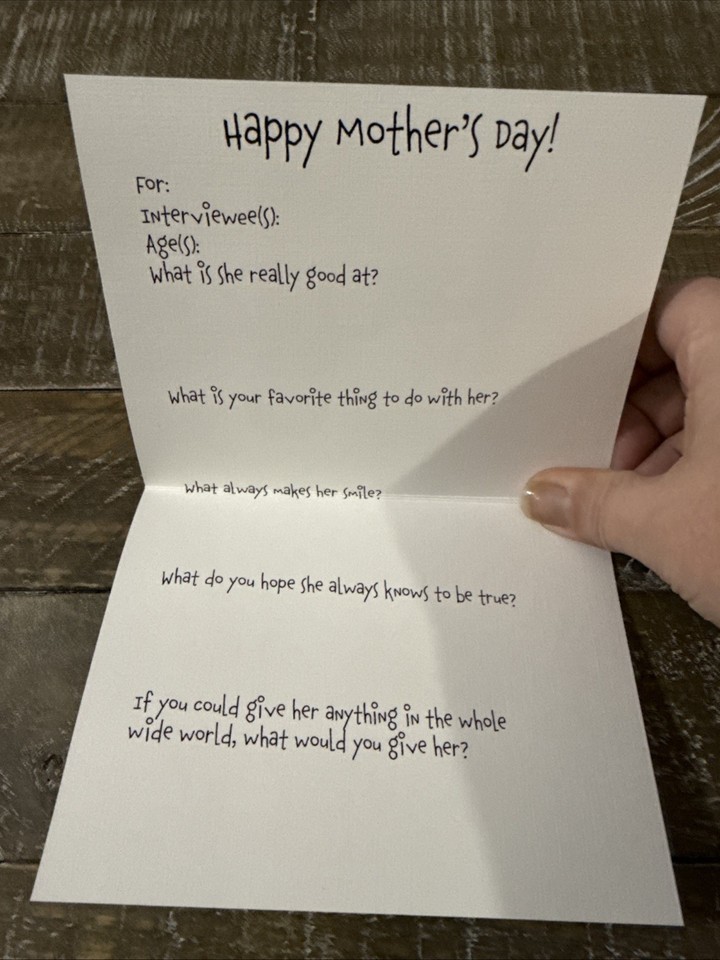 Happy Mother's Day!
For:
Interviewee(s):
Age(s):
What is she really good at?
What is your favorite thing to do with her?
What always makes her smile?
What do you hope she always knows to be true?
If you could give her anything in the whole
wide world, what would you give her?